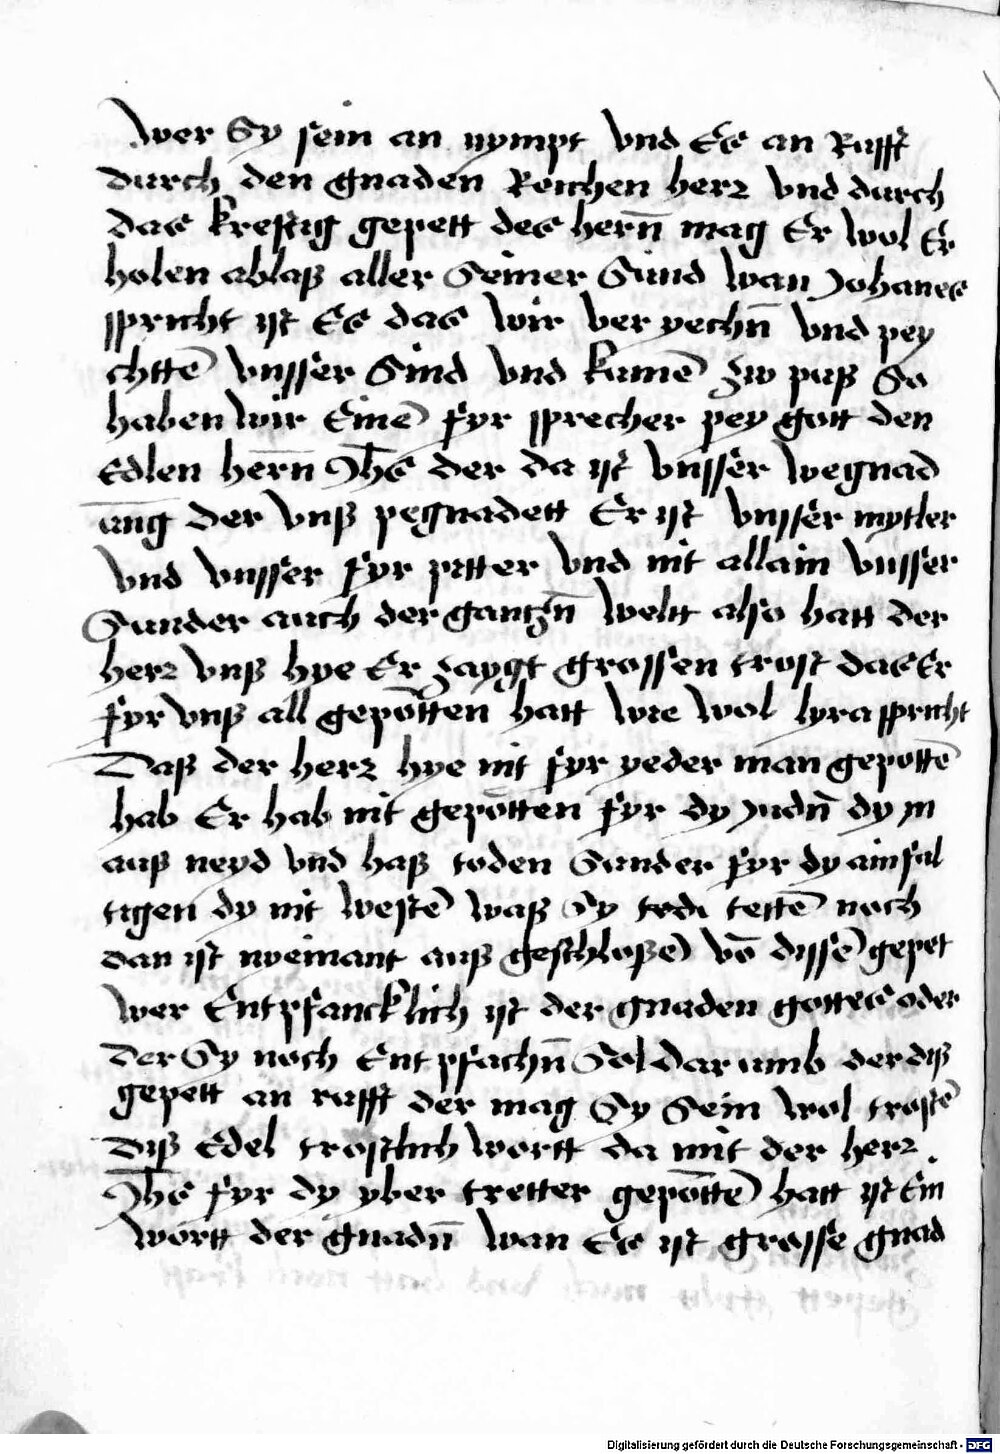 wer Sy sein an nympt vnd Es an Rufft
durch den gnaden Reichen herr vnd durch
das kreftig gepett des hern̄ mag Er wol Er
holen ablaß aller Seiner Sünd wan Johanes
spricht ist Es das wir ver yechn̄ vnd pey
chttē vnsser Sind vnd kumē zw puß So
haben wir Einē fyr sprecher pey gott den
Edlen hern̄ Jhs̄ der da ist vnsser wegnad
ūng der vnß pegnadett Er ist vnsser mytler
vnd vnsser fyr pitter vnd nit allain vnsser
Sunder auch der gantzn̄ weltt also hatt der
herr vnß hye Er zaygt grossen trost das Er
fyr vnß all gepötten hatt wie wol lyra spricht
Daß der herr hye nit fyr yeder man gepottē
hab Er hab nit gepötten fyr dy Judn̄ dy in
auß neyd vnd haß toden Sunder fyr dy ainfal
tigen dy nit westē waß Sy tettē noch
dan ist nyeinant auß geschloßē vō dissē gepet
wer Entpfancklich ist der gnaden gottes oder
der Sy noch Entpfachn̄ Sol Dar umb der diß
gepett an rufft der mag Sy Sein wol trostē
Diß Edel trostlich wortt da mit der herr
Jhs̄ fyr dy yber tretter gepöttē hatt ist Ein
wortt der gnadn̄ wan Es ist grosse gnad
Digitalisierung gefördert durch die Deutsche Forschungsgemeinschaft - DFG